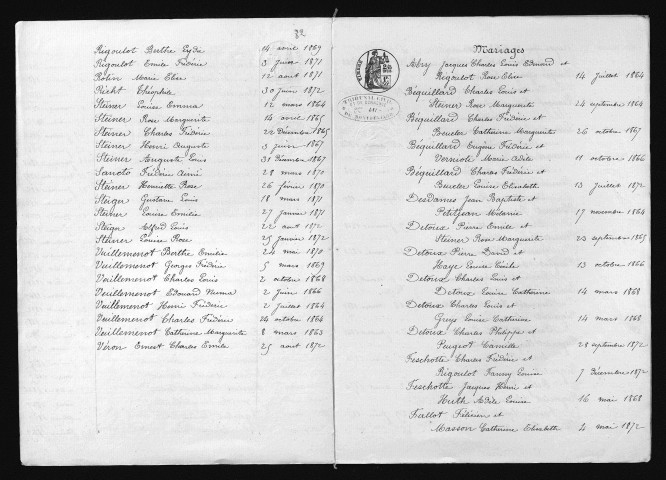 82
Rigoulot Berthe Lydie 14 avril 1869
Rigoulot Emile Frédéric 3 1871
Robin Marie Elise 12 août 1871
Théophile 30 juin 1872
Steiner Louise Emma 12 mars 1864
Steiner Rose Marguerite 14 avril 1865
Steiner Charles Frédéric 22 Décembre 1865
Steiner Henri Auguste 3 juin 1867
Steiner Auguste Louis 31 Décembre 1867
Frédéric 28 mars 1870
Steiner Henriette Rose 26 février 1870
Steiger Gustave Louis 18 mars 1871
Steiner Louise Emilie 27 janvier 1871
Alfred Louis 22 août 1872
Steiner Louise Rose 25 janvier 1872
Vuillemenot Berthe Emilie 24 mai 1870
Vuillemenot Georges Frédéric 5 mars 1869
Vuillemenot Charles Louis 2 octobre 1868
Vuillemenot Edouard 2 juin 1866
Vuillemenot Henri Frédéric 2 juillet 1864
Vuillemenot Charles Frédéric 24 octobre 1864
Vuillemenot Catherine Marguerite 8 mars 1863
Véron Ernest Charles Emile 25 août 1872
Mariages
Abry Jacques Charles Louis Edouard et
Rigoulot Rose Elise 14 juillet 1864
Béquillard Charles Louis et
Steiner Rose Marguerite 24 septembre 1864
Béquillard Charles Frédéric et
Bourler Catherine Marguerite 26 octobre 1867
Béquillard Eugène Frédéric et
Marie Adèle 11 octobre 1866
Béquillard Charles Frédéric et
Louise Elisabeth 13 juillet 1872
Desdames Jean Baptiste et
Petitjean Mélanie 17 novembre 1864
Detoux Pierre Emile et
Steiner Rose Marguerite 23 septembre 1865
Detoux Pierre David et
Haye Louise Cécile 13 octobre 1866
Detoux Charles Louis et
Detoux Louise Catherine 14 mars 1868
Detoux Charles Louis et
Louise Catherine 14 mars 1868
Detoux Charles Philippe et
Peugeot Camille 28 septembre 1872
Feschotte Charles Frédéric et
Rigoulot Fanny Louise 7 Décembre 1872
Feschotte Jacques Henri et
Huth Adèle Louise 16 mai 1868
Fallot Félicien et
Masson Catherine Elisabeth 4 mai 1872